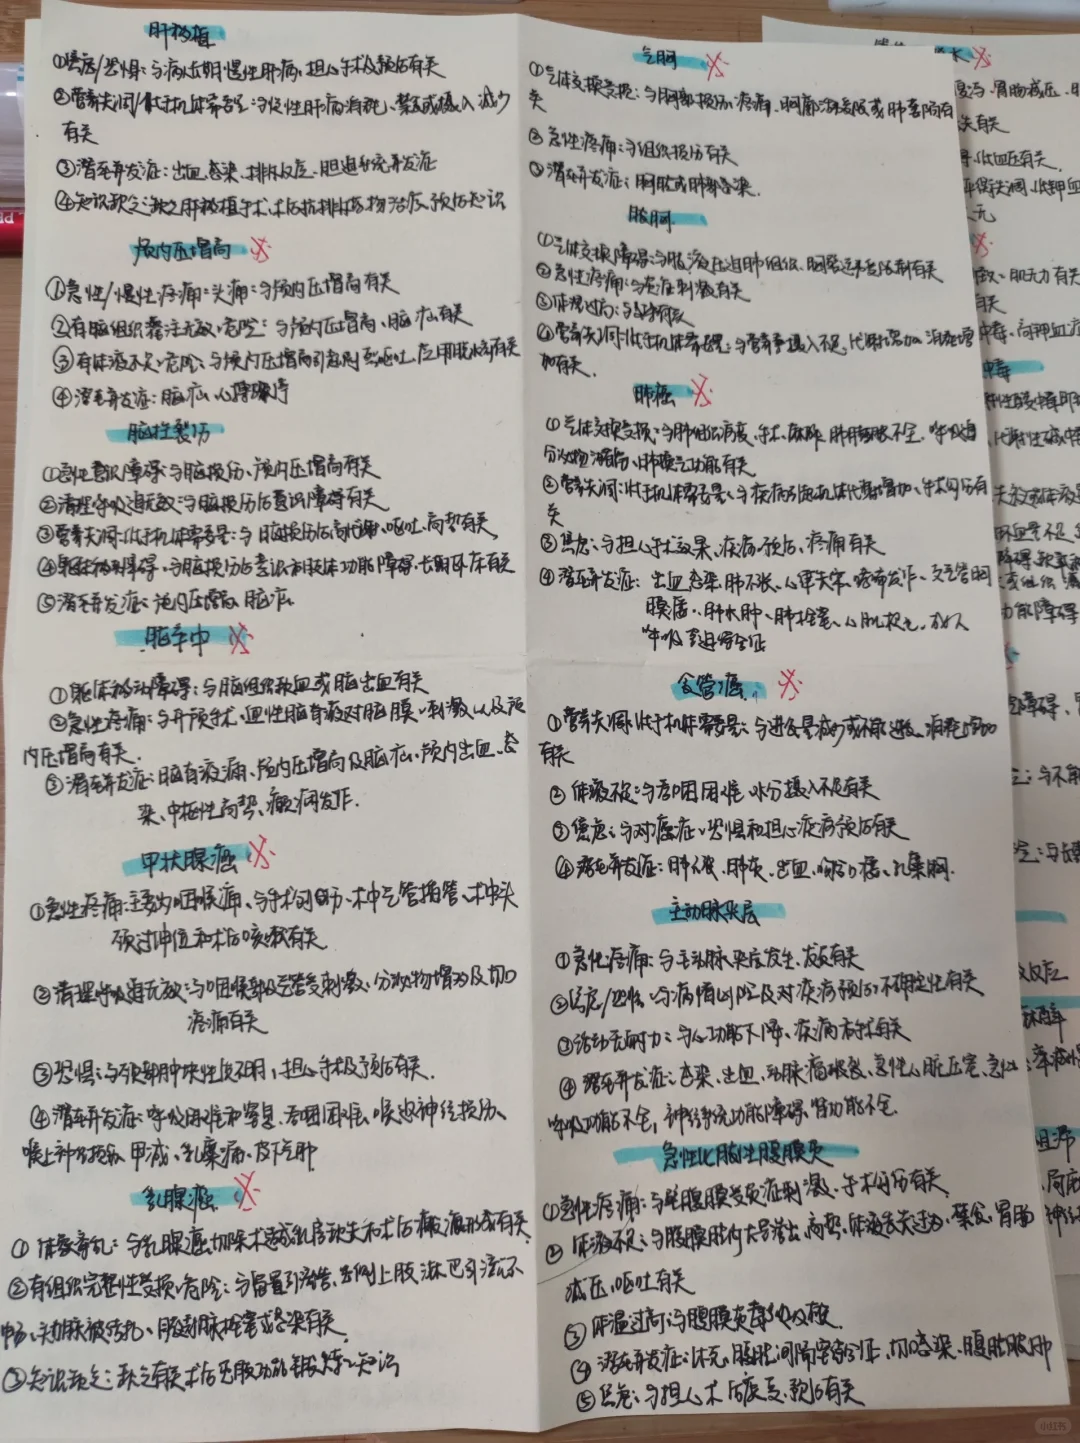 肝移植
①焦虑/恐惧:与病近期慢性肝病、担心手术及预后有关
②营养失调/低于机体需要量:与慢性肝病消耗、禁食或摄入减少
有关
③潜在并发症:出血、感染、排斥反应、胆道系统并发症
④知识缺乏:缺乏肝移植手术、术后抗排斥药物治疗、预后知识
颅内压增高
①急性/慢性疼痛:头痛:与颅内压增高有关
②有脑组织灌注无效危险:与颅内压增高、脑疝有关
③有体液不足危险:与颅内压增高引起剧烈呕吐、应用脱水剂有关
④潜在并发症:脑疝、心脏骤停
脑挫裂伤
①急性意识障碍:与脑损伤、颅内压增高有关
②清理呼吸道无效:与脑损伤后意识障碍有关
③营养失调:低于机体需要量:与脑损伤后高代谢、呕吐、高热有关
④躯体移动障碍:与脑损伤后意识和肢体功能障碍、长期卧床有关
⑤潜在并发症:颅内压增高、脑疝
脑卒中
①躯体移动障碍:与脑组织缺血或脑出血有关
②急性疼痛:与开颅手术、血性脑脊液对脑膜刺激以及颅
内压增高有关.
③潜在并发症:脑脊液漏、颅内压增高及脑疝、颅内出血、感
染、中枢性高热、癫痫发作.
甲状腺癌
①急性疼痛:主要为咽喉痛、与手术创伤、术中气管插管、术中头
颈过伸位和术后咳嗽有关
②清理呼吸道无效:与咽喉部及气管受刺激、分泌物增多及切口
疼痛有关
③恐惧:与颈部肿块性质不明,担心手术及预后有关.
④潜在并发症:呼吸困难和窒息、吞咽困难、喉返神经损伤、
喉上神经损伤、甲减、乳糜漏、皮下气肿
乳腺癌
①体象紊乱:与乳腺癌切除术造成乳房缺失和术后瘢痕形成有关
②有组织完整性受损危险:与留置引流管、患侧上肢淋巴引流不
畅、动脉被结扎、腋静脉栓塞或感染有关
③知识缺乏:缺乏有关术后患肢功能锻炼知识
气胸
①气体交换受损:与胸部损伤、疼痛、胸廓活动受限或肺萎陷有
关
②急性疼痛:与组织损伤有关
③潜在并发症:胸腔或肺部感染.
脓胸
①气体交换障碍:与脓液压迫肺组织、胸壁运动受限制有关
②急性疼痛:与炎症刺激有关
③体温过高:与感染有关
④营养失调:低于机体需要量:与营养摄入不足、代谢增加、消耗增
加有关.
肺癌
①气体交换受损:与肺组织病变、手术、麻醉、肺膨胀不全、呼吸道
分泌物潴留、肺换气功能有关
②营养失调:低于机体需要量:与疾病引起机体代谢增加、手术创伤有
关
③焦虑:与担心手术效果、疾病、预后、疼痛有关
④潜在并发症:出血、感染、肺不张、心律失常、哮喘发作、支气管胸
膜瘘、肺水肿、肺栓塞、心肌梗死、成人
呼吸窘迫综合征
食管癌
①营养失调:低于机体需要量:与进食量减少或不能进食、消耗增加
有关
②体液不足:与吞咽困难、水分摄入不足有关
③焦虑:与对癌症恐惧和担心疾病预后有关
④潜在并发症:肺不张、肺炎、出血、吻合口瘘、乳糜胸.
主动脉夹层
①急性疼痛:与主动脉夹层发生、发展有关
②焦虑/恐惧:与病情凶险及对疾病预后不确定性有关
③活动无耐力:与心功能下降、疾病、手术有关
④潜在并发症:感染、出血、动脉瘤破裂、急性心脏压塞、急性
呼吸功能不全,神经系统功能障碍、肾功能不全.
急性化脓性腹膜炎
①急性疼痛:与壁腹膜受炎症刺激、手术创伤有关
②体液不足:与腹膜腔内大量渗出、高热、体液丢失过多、禁食、胃肠
减压、呕吐有关
③体温过高:与腹膜炎毒物吸收.
④潜在并发症:休克、腹腔间隔室综合征、切口感染、腹腔脓肿
⑤焦虑:与担心术后康复、预后有关
胃肠减压
低血压有关
肌无力有关
有关